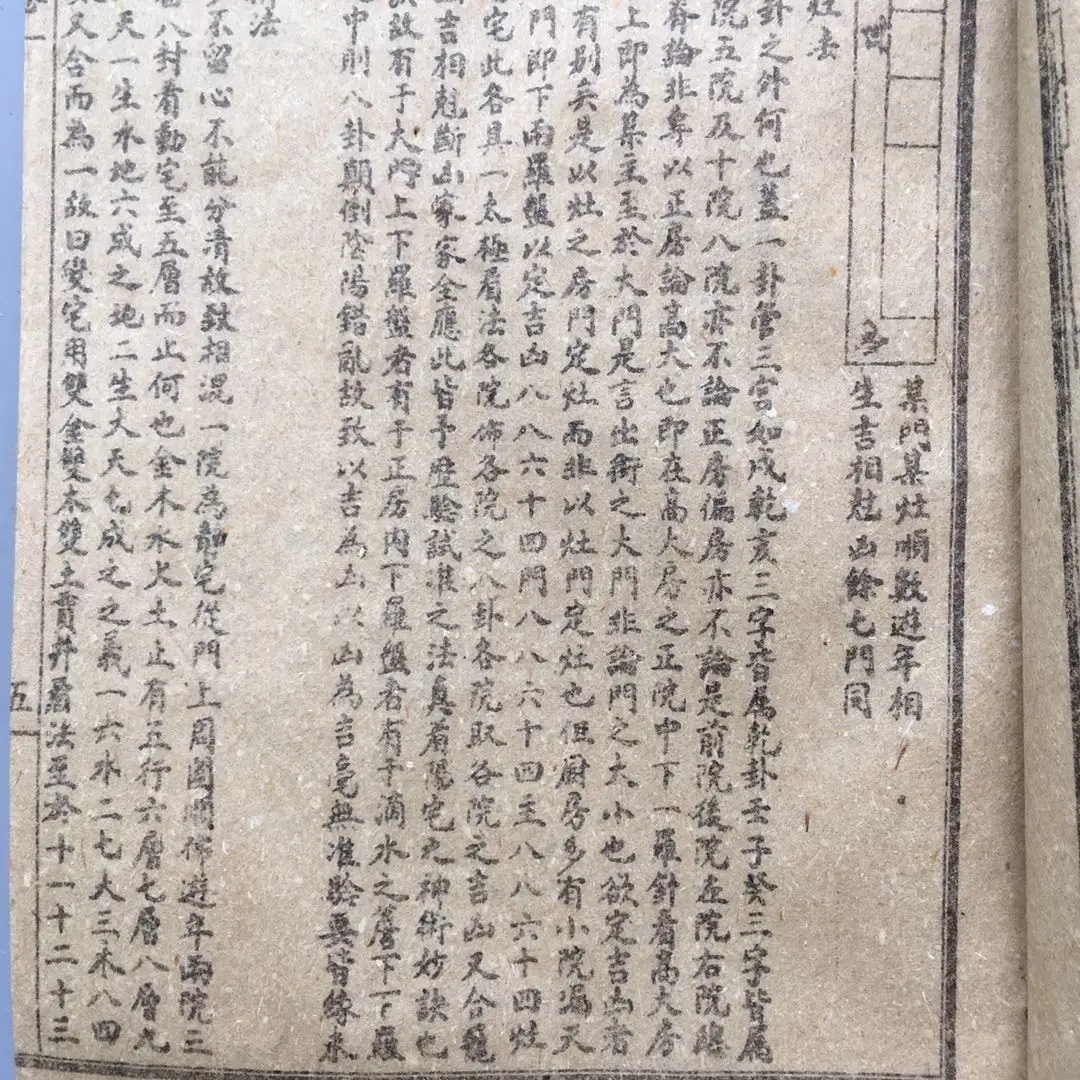 某門某灶順數遊年相
生吉相尅凶餘七門同
灶去
卦之外何也蓋一卦管三宮如戌乾亥三字皆屬乾卦壬子癸三字皆屬
院五院及十院八院亦不論正房偏房亦不論是前院後院左院右院總
脊論非專以正房論高大也即在高大房之正院中下一羅針看高大房
上即為某主至於大門是言出街之大門非論門之大小也欲定吉凶者
有別矣是以灶之房門定灶而非以灶門定灶也但厨房多有小院漏天
門即下兩羅盤以定吉凶八八六十四門八八六十四主八八六十四灶
宅此各具一太極看法各院佈各院之八卦各院取各院之吉凶又合
吉相尅斷凶家家全應此皆予歷驗試准之法真看陽宅之神術妙訣也
故有于大門上下羅盤者有于正房內下羅盤者有于滴水之簷下下羅
中則八卦顛倒陰陽錯亂故致以吉為凶以凶為吉毫無准驗要皆緣未
法
不留心不能分清故致相混一院為静宅從門上周圍順佈遊年兩院三
八封看動宅至五層而止何也金木水火土止有五行六層七層八層九
天一生水地六成之地二生火天七成之之義一六水二七火三木八四
又合而為一故曰變宅用雙金雙木雙土貫井看法至於十一十二十三
五